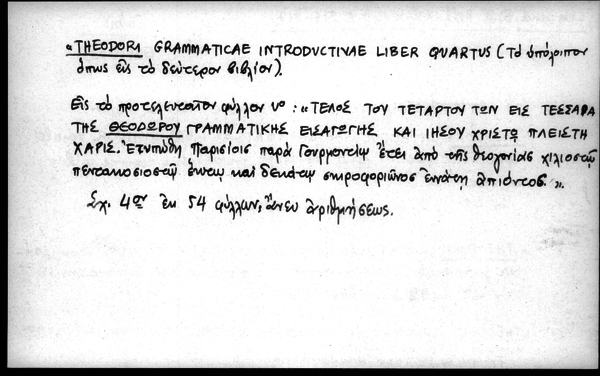 «THEODORI GRAMMATICAE INTRODVCTIVAE LIBER QUARTUS (Τὸ ὑπόλοιπον
ὅπως εἰς τὸ δεύτερον βιβλίον).
Εἰς τὸ προτελευταῖον φύλλον vº: «ΤΕΛΟΣ ΤΟΥ ΤΕΤΑΡΤΟΥ ΤΩΝ ΕΙΣ ΤΕΣΣΑΡΑ
ΤΗΣ ΘΕΟΔΩΡΟΥ ΓΡΑΜΜΑΤΙΚΗΣ ΕΙΣΑΓΩΓΗΣ ΚΑΙ ΙΗΣΟΥ ΧΡΙΣΤῼ ΠΛΕΙΣΤΗ
ΧΑΡΙΣ. Ἐτυπώθη Παρισίοις παρὰ Γουρμοντίῳ ἔτει ἀπὸ τῆς θεογονίας χιλιοστῷ
πεντακοσιοστῷ ἕκτῳ καὶ δεκάτῳ σκιροφοριῶνος ἐννάτῃ ἀπιόντος.».
Σχ. 4ον ἐκ 54 φύλλων, ἄνευ ἀριθμήσεως.